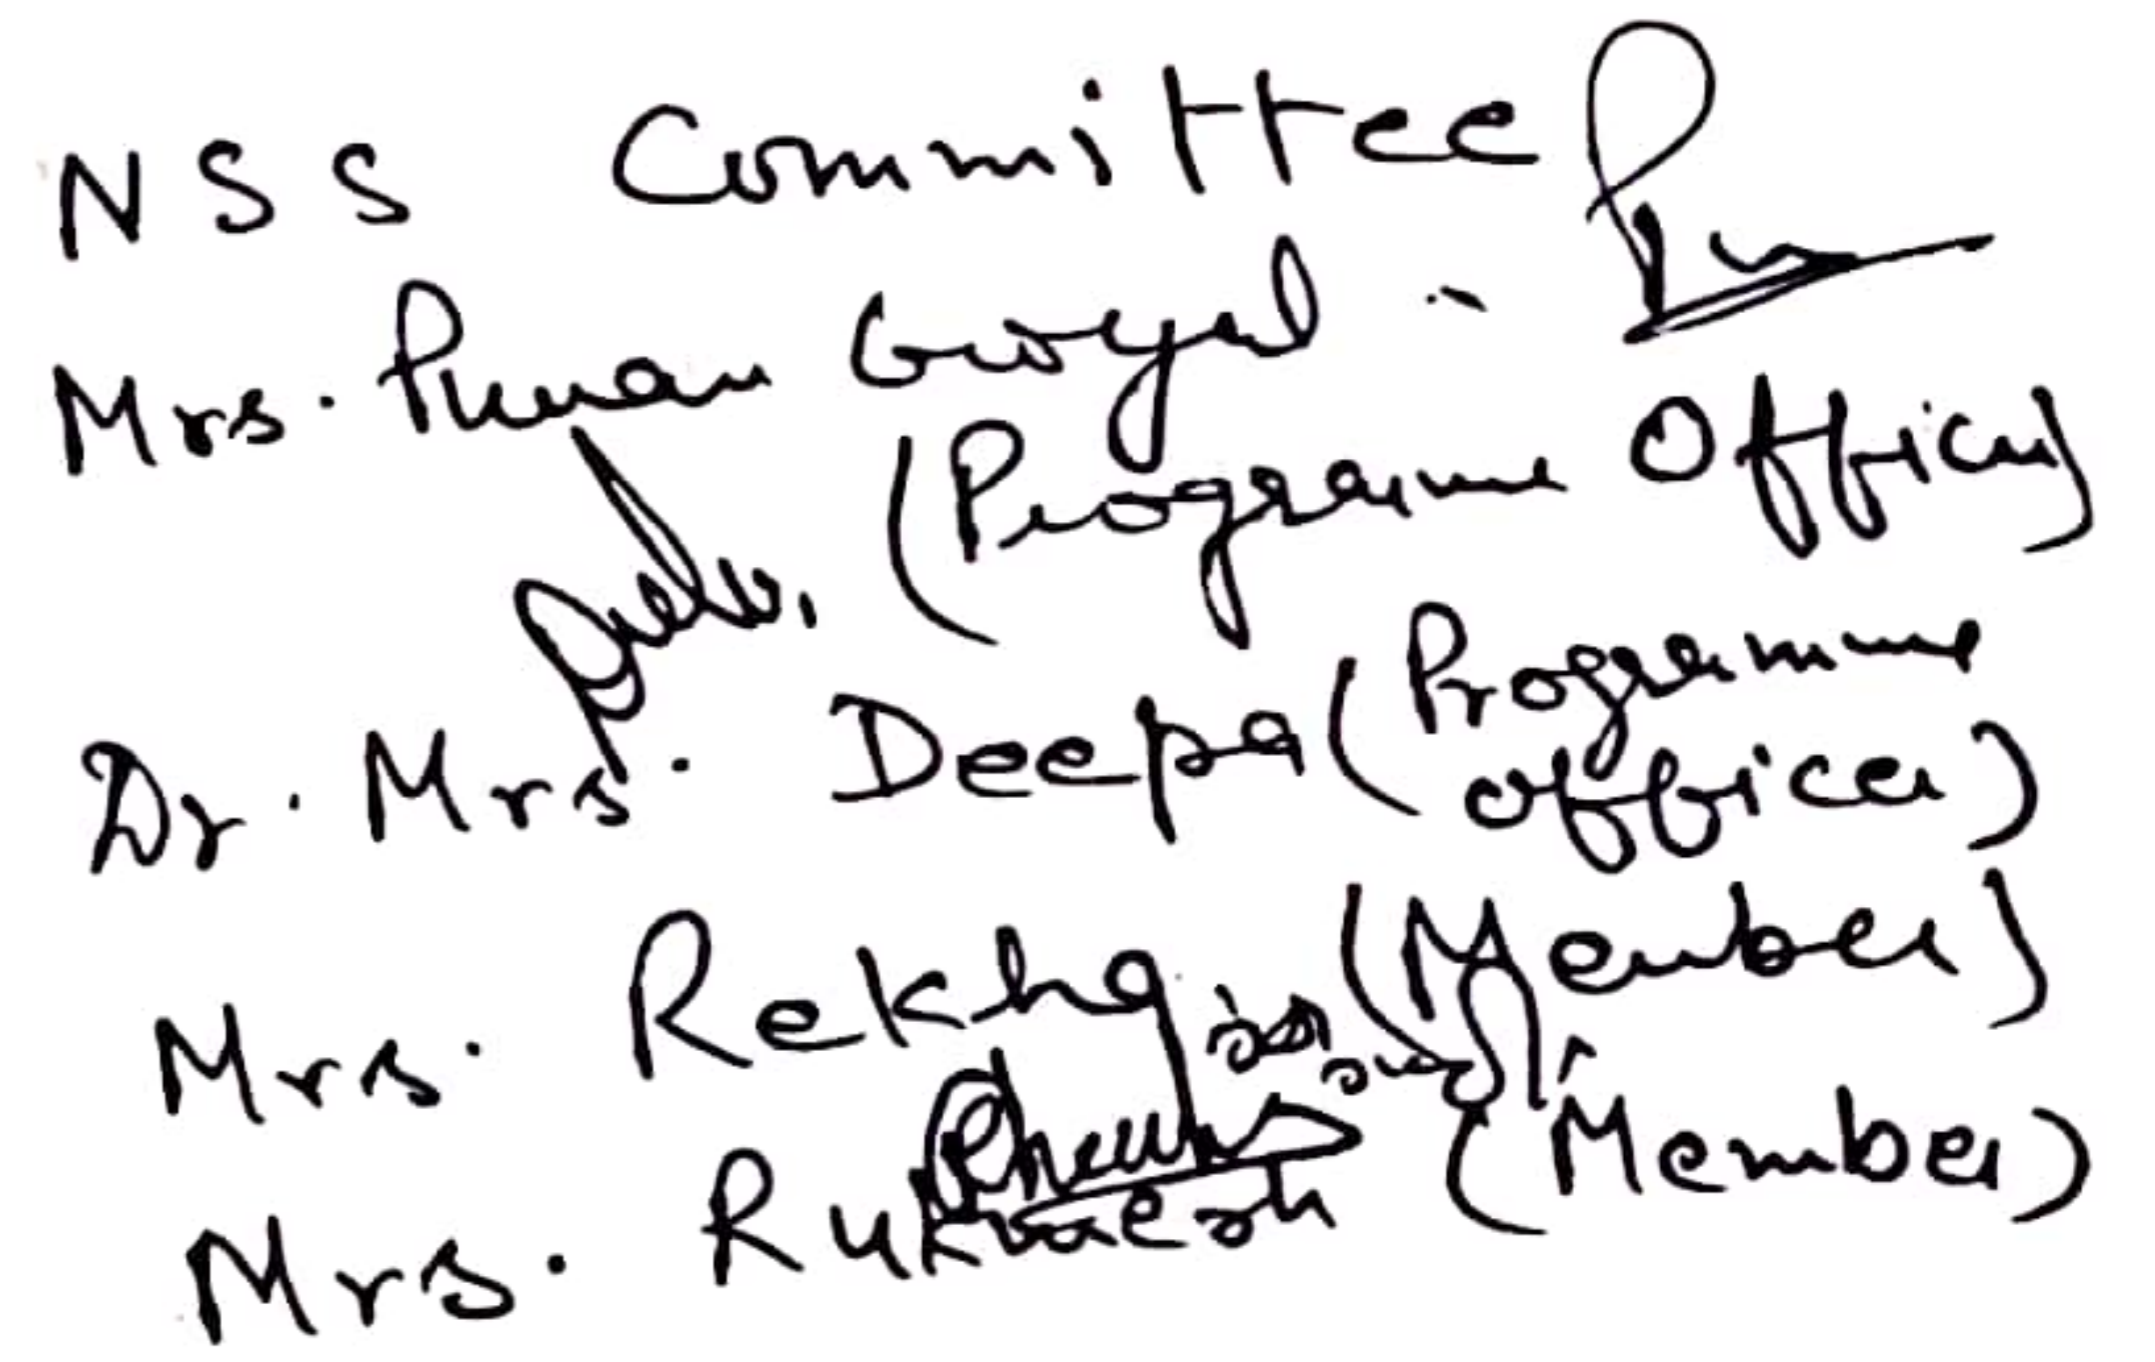 NSS Committee
Mrs. Punam Goyal -
(Programme Officer)
Dr. Mrs. Deepa (Programme
officer)
Mrs. Rekha (Member)
Mrs. (Member)